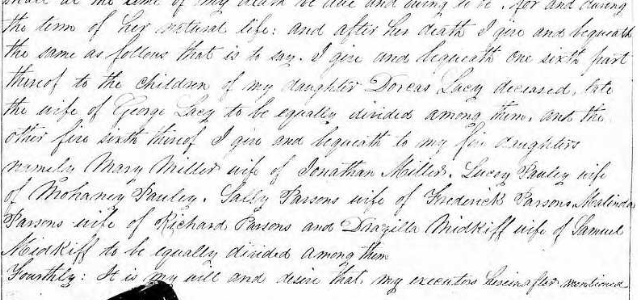 shall at the time of my death be due and owing to be, for and during
the term of her natural life: and after her death I give and bequeath
the same as follows that is to say. I give and bequeath one sixth part
thereof to the children of my daughter Dorcas Lacy deceased, late
the wife of George Lacy to be equally divided among them, and the
other five sixth thereof I give and bequeath to my five daughters
namely Mary Miller wife of Jonathan Miller. Lucey Pauley wife
of Mohaney Pauley. Sally Parsons wife of Frederick Parsons, Malinda
Parsons wife of Richard Parsons and Drazilla Midkiff wife of Samuel
Midkiff to be equally divided among them
Fourthly: It is my will and desire that my executors hereinafter mentioned